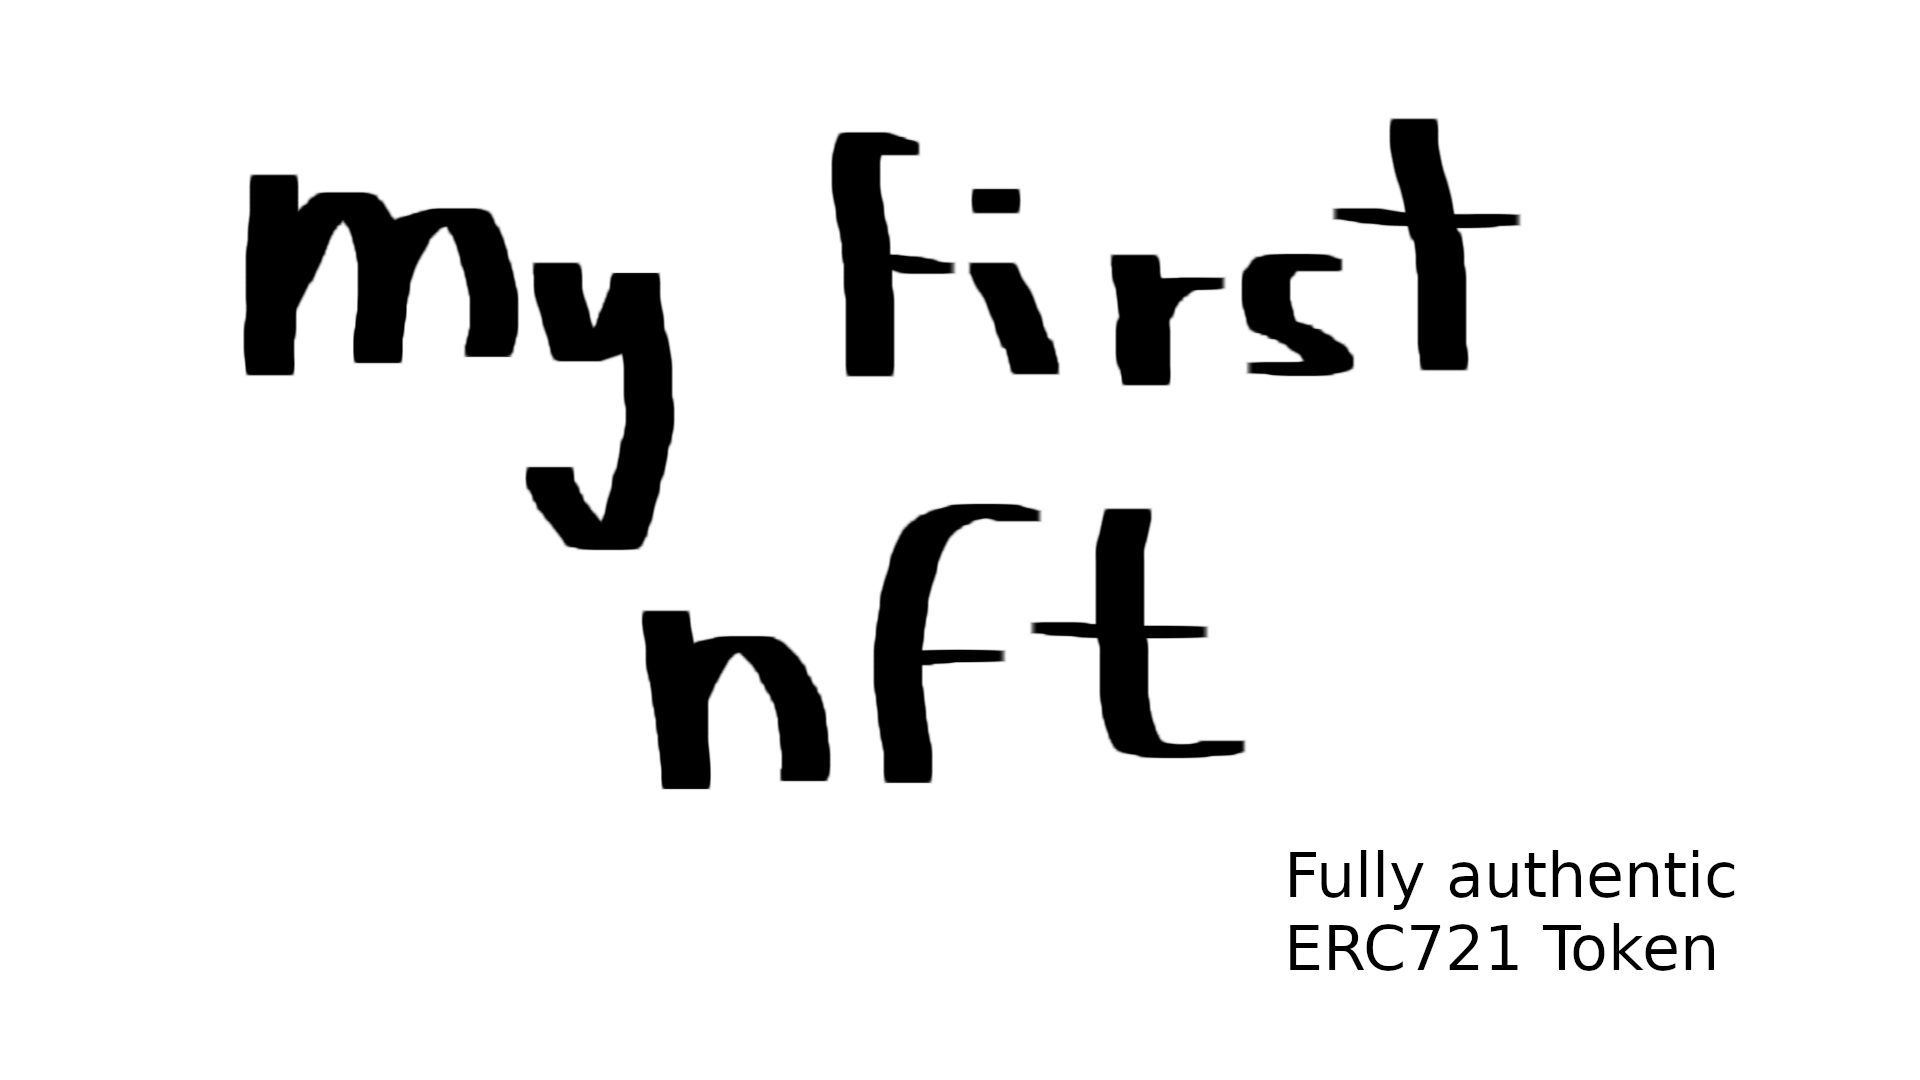 my first
nft
Fully authentic
ERC721 Token